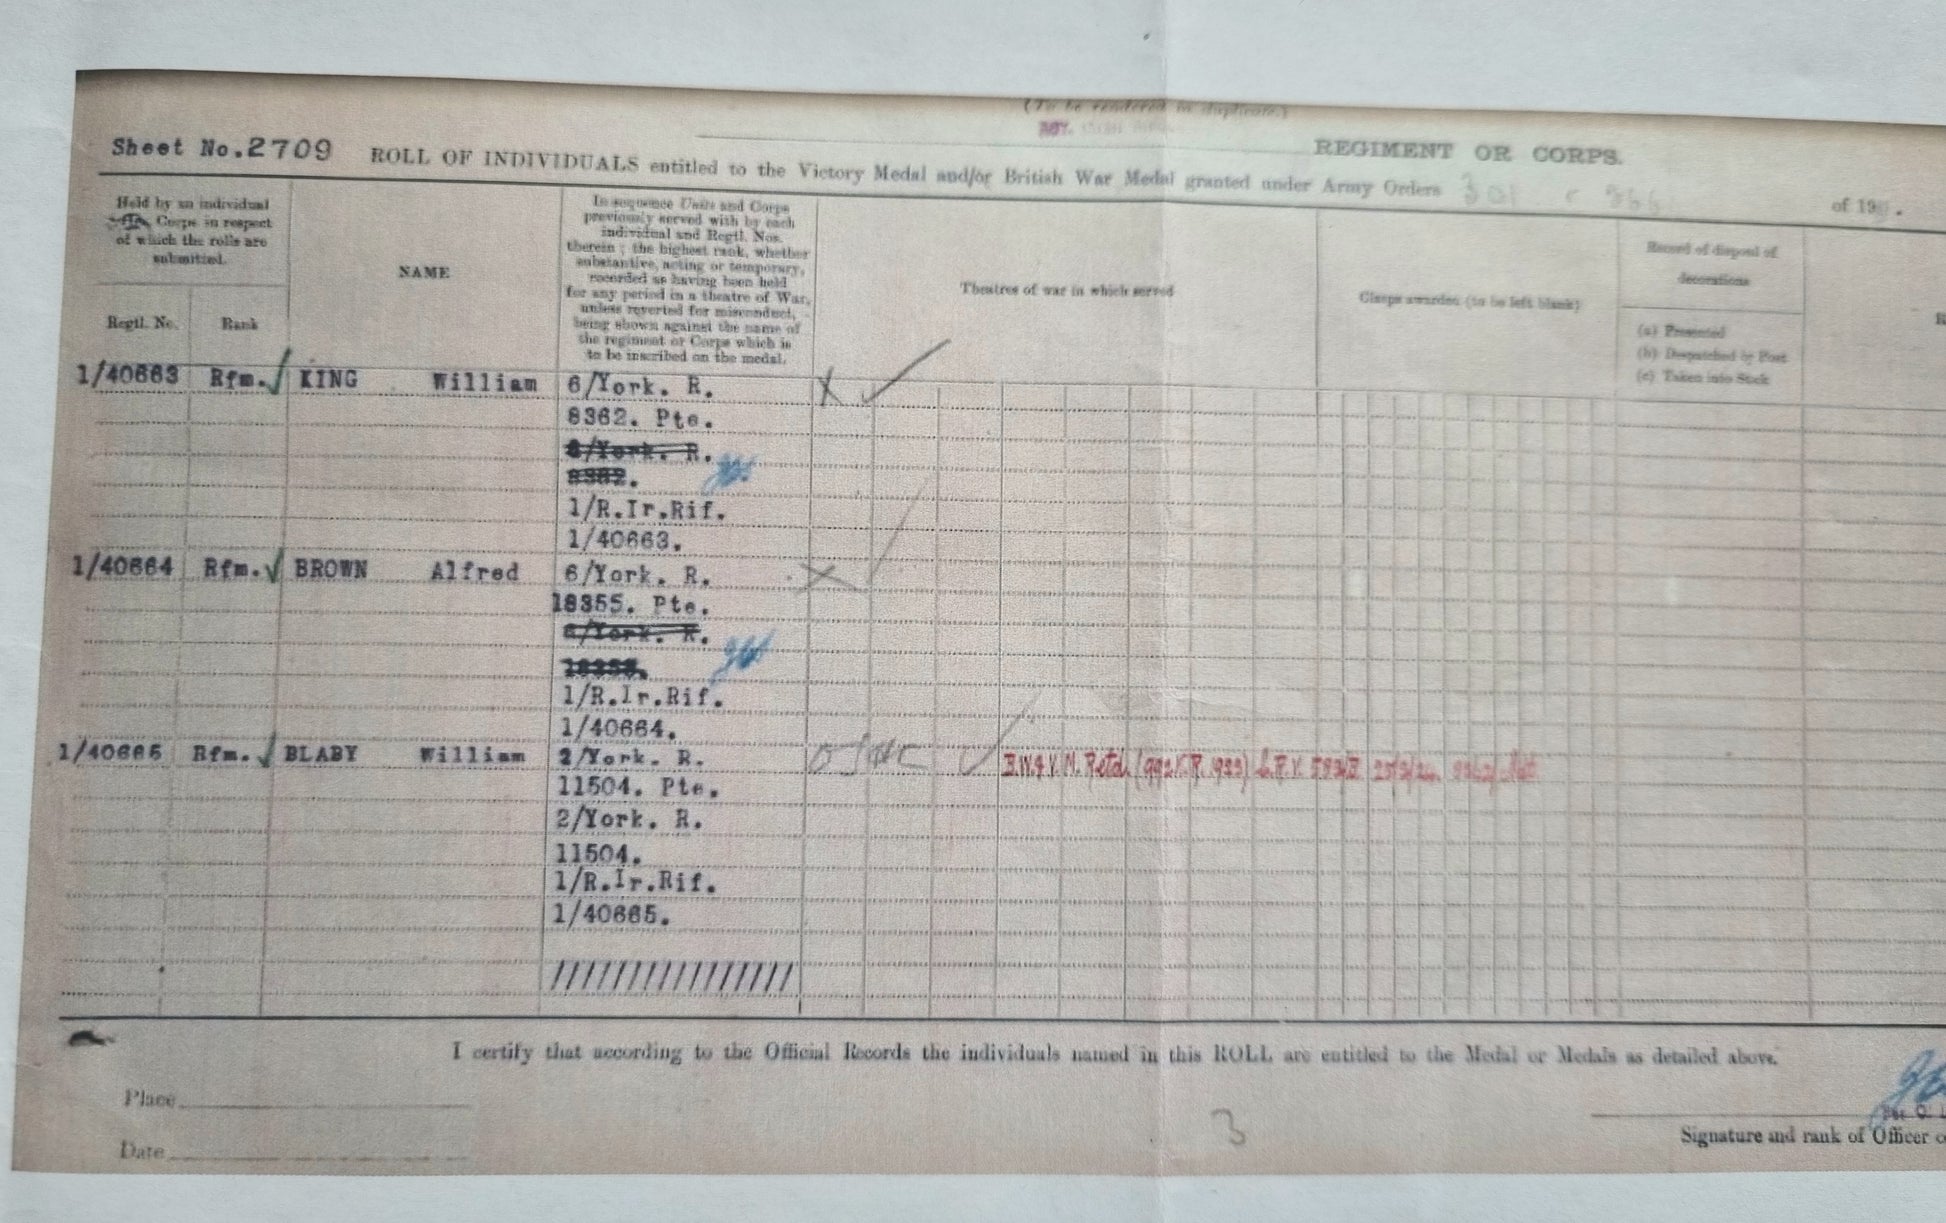 (To be rendered in duplicate.)
Sheet No. 2709 ROLL OF INDIVIDUALS entitled to the Victory Medal and/or British War Medal granted under Army Orders 301 of 19 .
REGIMENT OR CORPS.
Held by an individual
Corps in respect
of which the rolls are
submitted.
Regtl. No. Rank
NAME
In sequence Units and Corps
previously served with by each
individual and Regtl. Nos.
therein; the highest rank, whether
substantive, acting or temporary,
recorded as having been held
for any period in a theatre of War,
unless reverted for misconduct,
being shown against the name of
the regiment or Corps which is
to be inscribed on the medal.
Theatres of war in which served
Clasps awarded (to be left blank)
Record of disposal of
decorations
(a) Presented
(b) Despatched by Post
(c) Taken into Stock
1/40663 Rfm. KING William 6/York. R. X
8362. Pte.
6/York. R.
8362.
1/R.Ir.Rif.
1/40663.
1/40664 Rfm. BROWN Alfred 6/York. R. X
18355. Pte.
6/York. R.
18355.
1/R.Ir.Rif.
1/40664.
1/40665 Rfm. BLABY William 2/York. R. B.W. & V. M. Retd. (992 K.R. 1923)
11504. Pte.
2/York. R.
11504.
1/R.Ir.Rif.
1/40665.
////////////////
I certify that according to the Official Records the individuals named in this ROLL are entitled to the Medal or Medals as detailed above.
Place
Date
3
Signature and rank of Officer